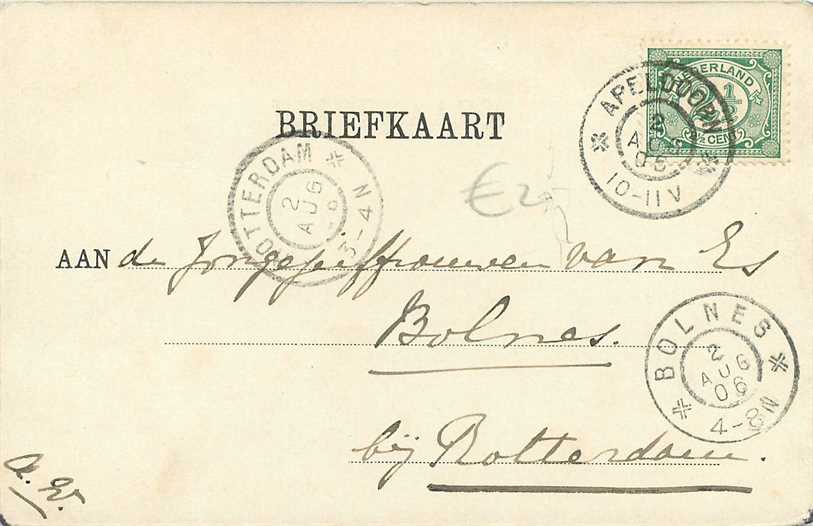 NEDERLAND
½
2½ CENT
APELDOORN
2
AU
06
10-11 V
BRIEFKAART
ROTTERDAM
2
AUG
3-4 N
€ 2
AAN de Jongejuffrouwen van Es
Bolnes.
bij Rotterdam.
BOLNES
2
AUG
06
4-8 N